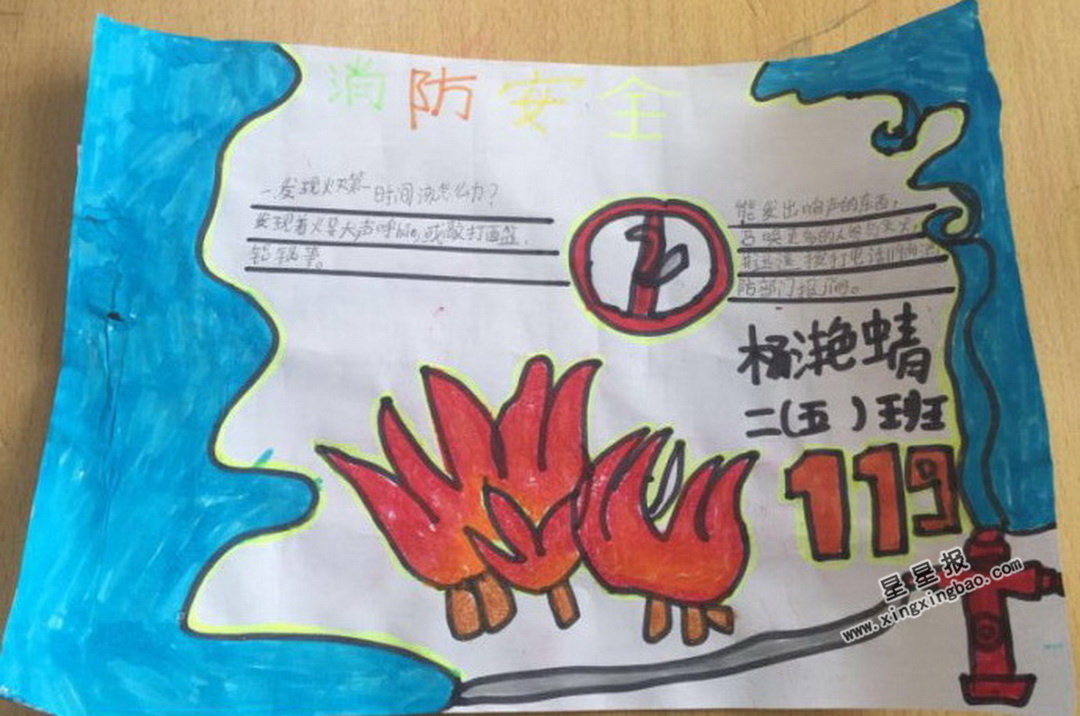 消防安全
一.发现火灾第一时间该怎么办？
发现着火要大声呼喊,或敲打面盆、
铝锅等。
能发出响声的东西，
召唤更多的人参与灭火，
并迅速拨打电话119向消
防部门报
杨滟蜻
二(五)班
119
星星报
www.xingxingbao.com